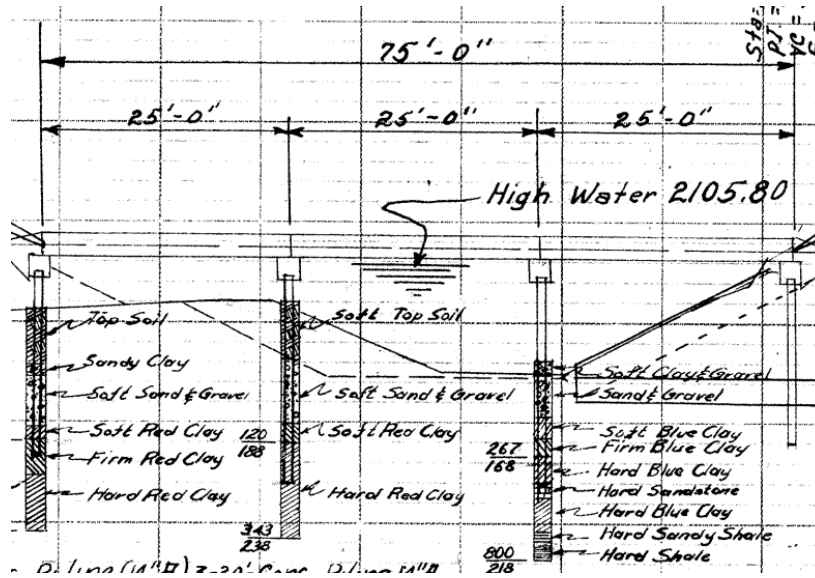 Sta=
PI=
VC=
75'-0"
25'-0" 25'-0" 25'-0"
High Water 2105.80
Top Soil
Sandy Clay
Soft Sand & Gravel
Soft Red Clay
Firm Red Clay
Hard Red Clay
Soft Top Soil
Soft Sand & Gravel
Soft Red Clay
Hard Red Clay
120
188
343
238
Soft Clay & Gravel
Sand & Gravel
Soft Blue Clay
Firm Blue Clay
Hard Blue Clay
Hard Sandstone
Hard Blue Clay
Hard Sandy Shale
Hard Shale
267
168
800
218
Piling (14"#) 3-20' Conc. Piling 14"#